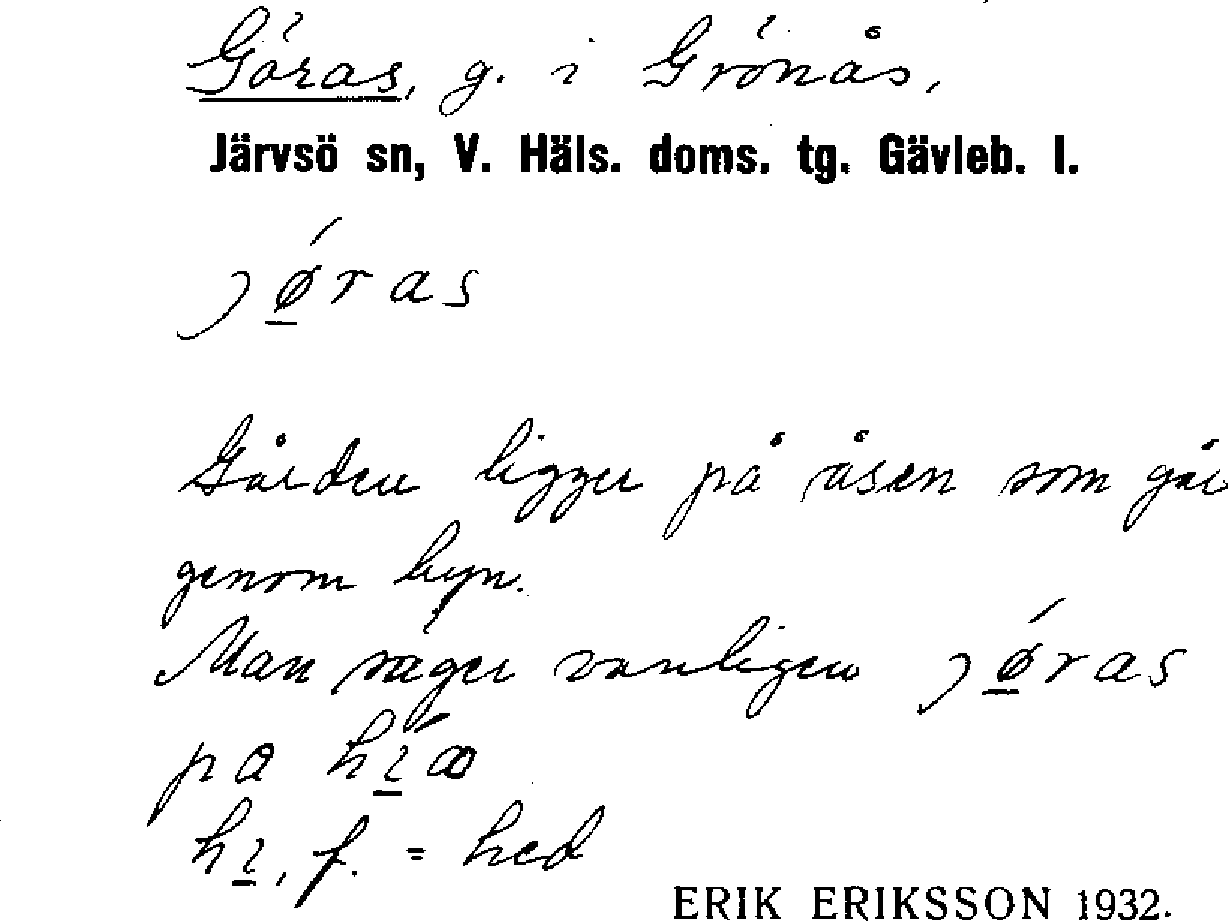 Göras, g. i Grönås,
Järvsö sn, V. Häls. doms. tg. Gävleb. l.
jǿ̲ras
Gården ligger på åsen som går
genom byn.
Man säger vanligen jǿ̲ras
pa
f. = hed
ERIK ERIKSSON 1932.